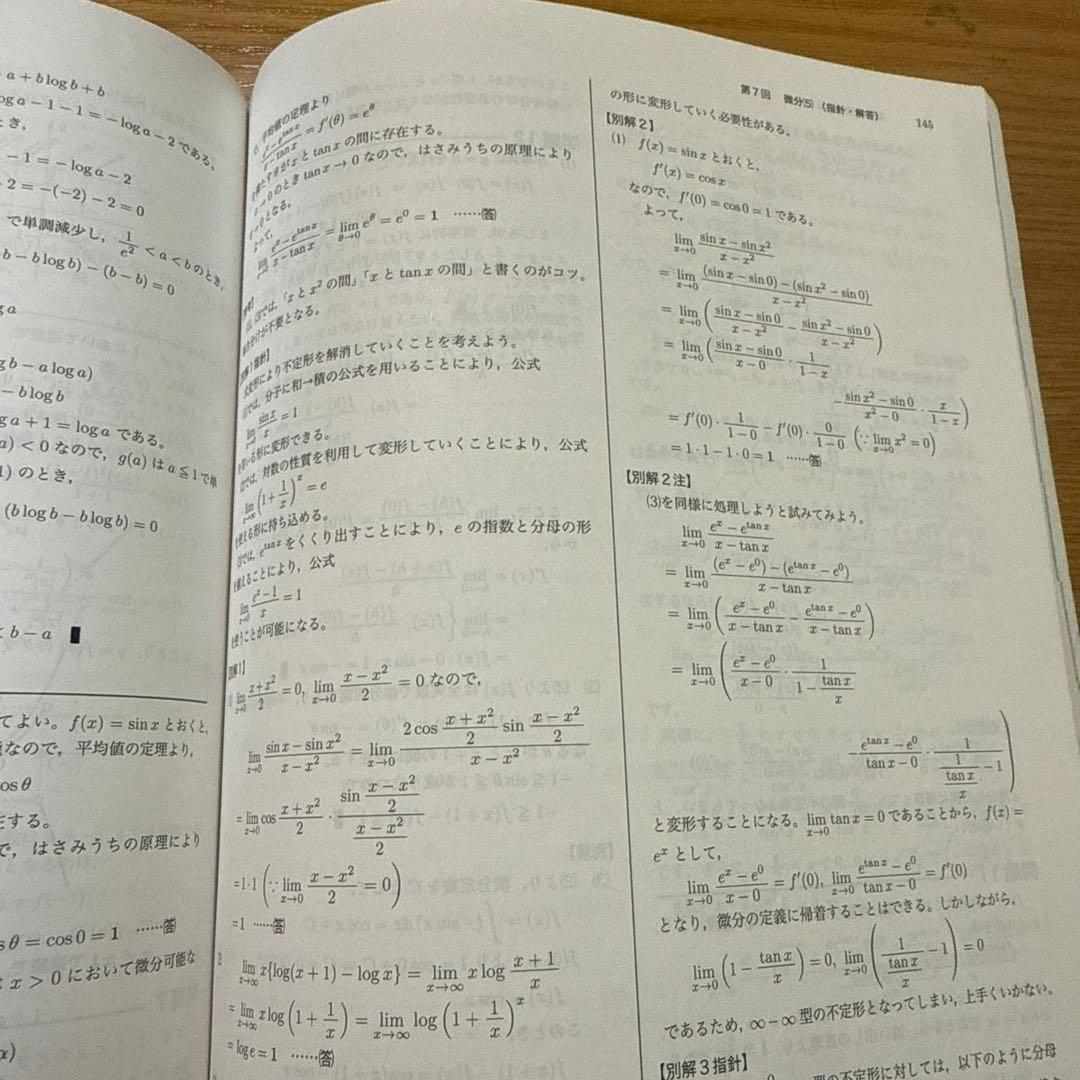 a + b log b + b
og a − 1 − 1 = − log a − 2 である。
とき,
− 1 = − log a − 2
· 2 = −(−2) − 2 = 0
で単調減少し, 1/e² < a < b のとき,
b − b log b) − (b − b) = 0
g a
g b − a log a)
− b log b
g a + 1 = log a である。
a) < 0 なので, g(a) は a ≦ 1 で単
1) のとき,
(b log b − b log b) = 0
< b − a ▮
てよい。f(x) = sin x とおくと,
能なので, 平均値の定理より,
cos θ
在する。
で, はさみうちの原理により
s θ = cos 0 = 1 ……(答)
x > 0 において微分可能な
平均値の定理より
(e^x − e^{tan x})/(x − tan x) = f′(θ) = e^θ
を満たす θ が x と tan x の間に存在する。
x → 0 のとき tan x → 0 なので, はさみうちの原理により
θ → 0 となる。
よって,
lim_{x→0} (e^x − e^{tan x})/(x − tan x) = lim_{θ→0} e^θ = e^0 = 1 ……(答)
では,「x と x² の間」「x と tan x の間」と書くのがコツ。
分けが不要となる。
指針】
変形により不定形を解消していくことを考えよう。
では, 分子に和→積の公式を用いることにより, 公式
lim_{x→0} sin x/x = 1
を使える形に変形できる。
では, 対数の性質を利用して変形していくことにより, 公式
lim_{x→∞} (1 + 1/x)^x = e
を使える形に持ち込める。
では, e^{tan x} をくくり出すことにより, e の指数と分母の形
を揃えることにより, 公式
lim_{x→0} (e^x − 1)/x = 1
を使うことが可能になる。
解1】
lim_{x→0} (x + x²)/2 = 0, lim_{x→0} (x − x²)/2 = 0 なので,
lim_{x→0} (sin x − sin x²)/(x − x²) = lim_{x→0} (2 cos (x + x²)/2 sin (x − x²)/2)/(x − x²)
= lim_{x→0} cos (x + x²)/2 · (sin (x − x²)/2)/((x − x²)/2)
= 1·1 (∵ lim_{x→0} (x − x²)/2 = 0)
= 1 ……(答)
lim_{x→∞} x{log(x + 1) − log x} = lim_{x→∞} x log (x + 1)/x
= lim_{x→∞} x log(1 + 1/x) = lim_{x→∞} log(1 + 1/x)^x
= log e = 1 ……(答)
第7回 微分(5)(指針・解答) 145
の形に変形していく必要性がある。
【別解2】
(1) f(x) = sin x とおくと,
f′(x) = cos x
なので, f′(0) = cos 0 = 1 である。
よって,
lim_{x→0} (sin x − sin x²)/(x − x²)
= lim_{x→0} ((sin x − sin 0) − (sin x² − sin 0))/(x − x²)
= lim_{x→0} ((sin x − sin 0)/(x − x²) − (sin x² − sin 0)/(x − x²))
= lim_{x→0} ((sin x − sin 0)/(x − 0) · 1/(1 − x)
− (sin x² − sin 0)/(x² − 0) · x/(1 − x))
= f′(0) · 1/(1 − 0) − f′(0) · 0/(1 − 0) (∵ lim_{x→0} x² = 0)
= 1 · 1 − 1 · 0 = 1 ……(答)
【別解2注】
(3)を同様に処理しようと試みてみよう。
lim_{x→0} (e^x − e^{tan x})/(x − tan x)
= lim_{x→0} ((e^x − e^0) − (e^{tan x} − e^0))/(x − tan x)
= lim_{x→0} ((e^x − e^0)/(x − tan x) − (e^{tan x} − e^0)/(x − tan x))
= lim_{x→0} ((e^x − e^0)/(x − 0) · 1/(1 − tan x/x)
− (e^{tan x} − e^0)/(tan x − 0) · 1/(1/(tan x/x) − 1))
と変形することになる。lim_{x→0} tan x = 0 であることから, f(x) =
e^x として,
lim_{x→0} (e^x − e^0)/(x − 0) = f′(0), lim_{x→0} (e^{tan x} − e^0)/(tan x − 0) = f′(0)
となり, 微分の定義に帰着することはできる。しかしながら,
lim_{x→0} (1 − tan x/x) = 0, lim_{x→0} (1/(tan x/x) − 1) = 0
であるため, ∞ − ∞ 型の不定形となってしまい, 上手くいかない。
【別解3指針】
型の不定形に対しては, 以下のように分母